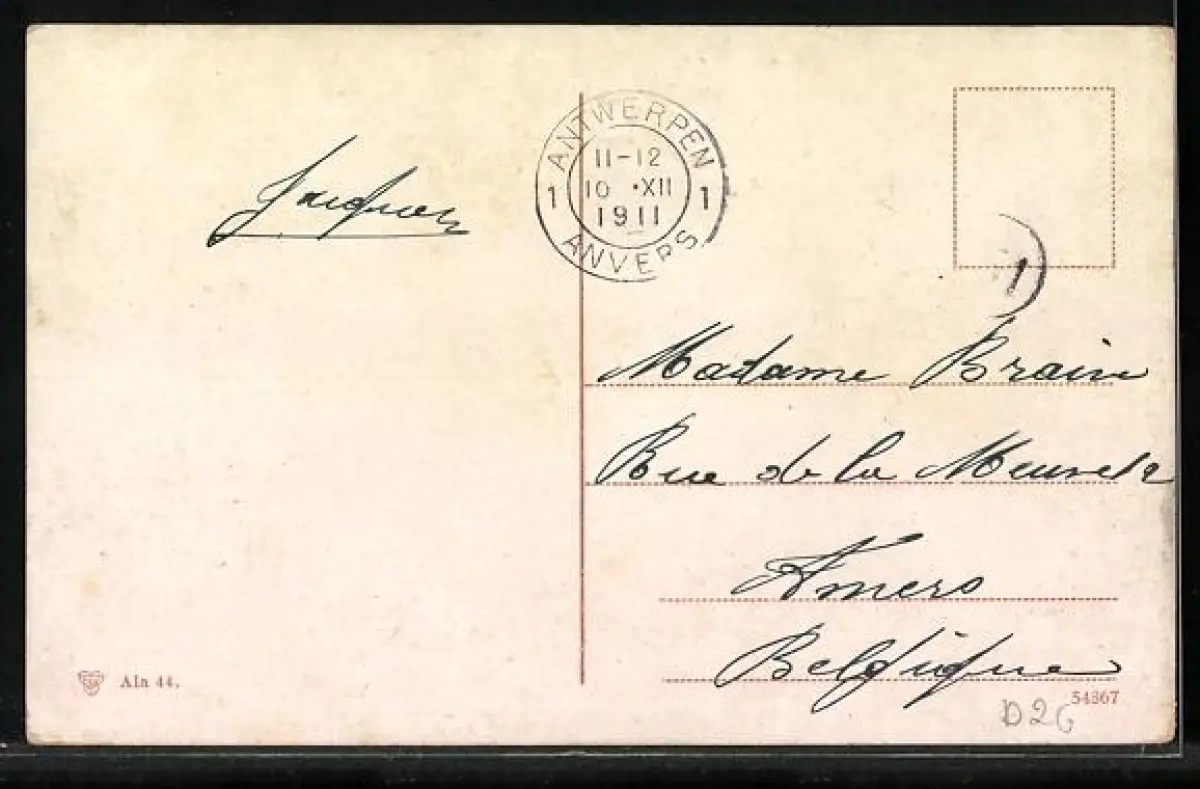 Jacques
ANTWERPEN
11-12
1 10 •XII 1
1911
ANVERS
1
Madame Braine
Rue de la
Anvers
Belgique
Ala 44.
54867
D26